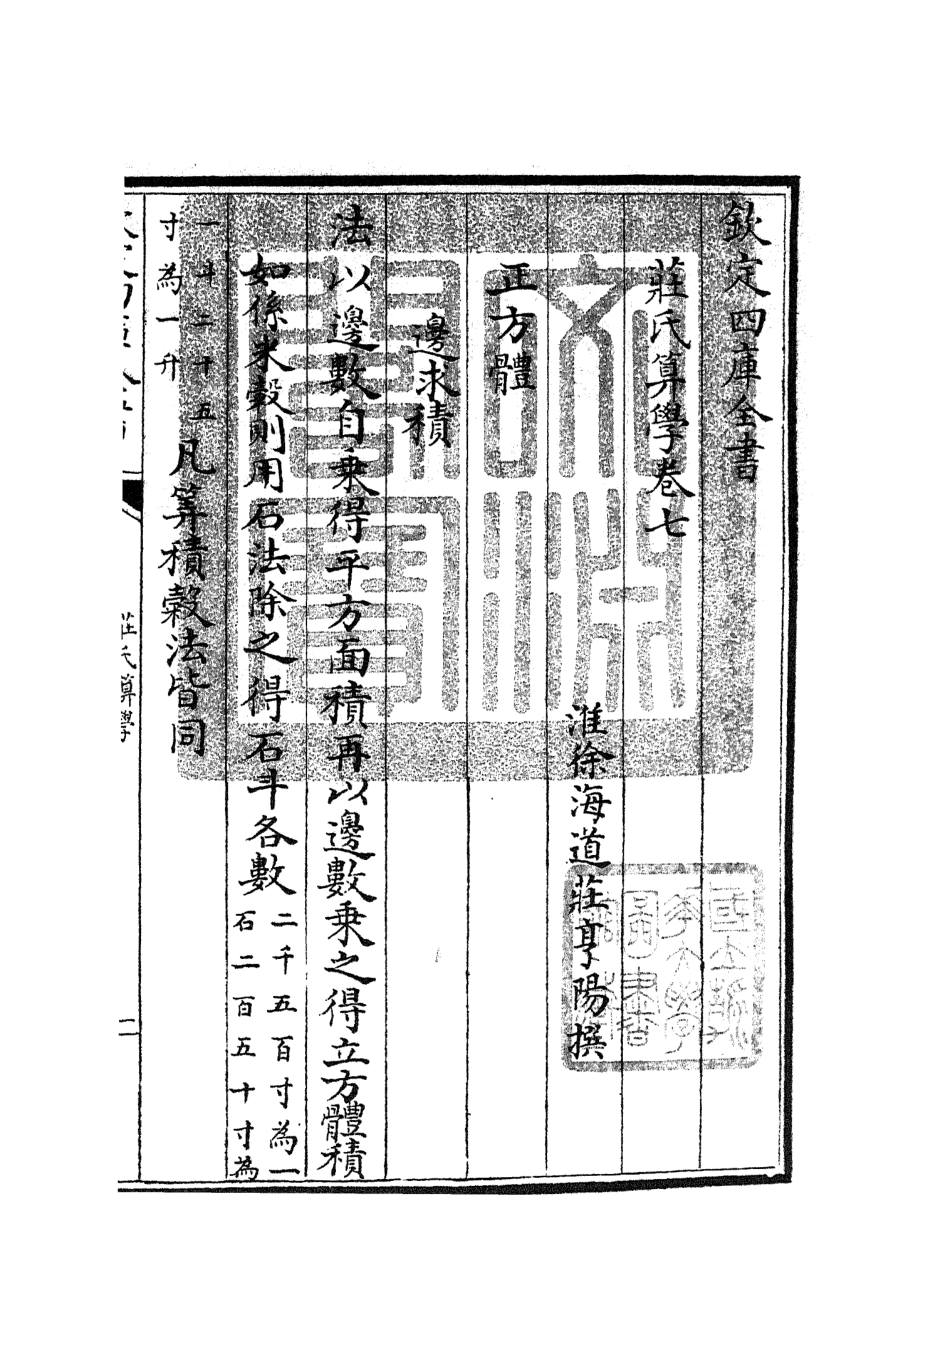 欽定四庫全書
莊氏算學卷七
淮徐海道莊亨陽撰
正方體
邊求積
法以邊數自乘得平方面積再以邊數乘之得立方體積
如係米穀則用石法除之得石斗各數二千五百寸為一
石二百五十寸為
一斗二十五
寸為一升
凡算積穀法皆同
莊氏算學
文淵閣寶